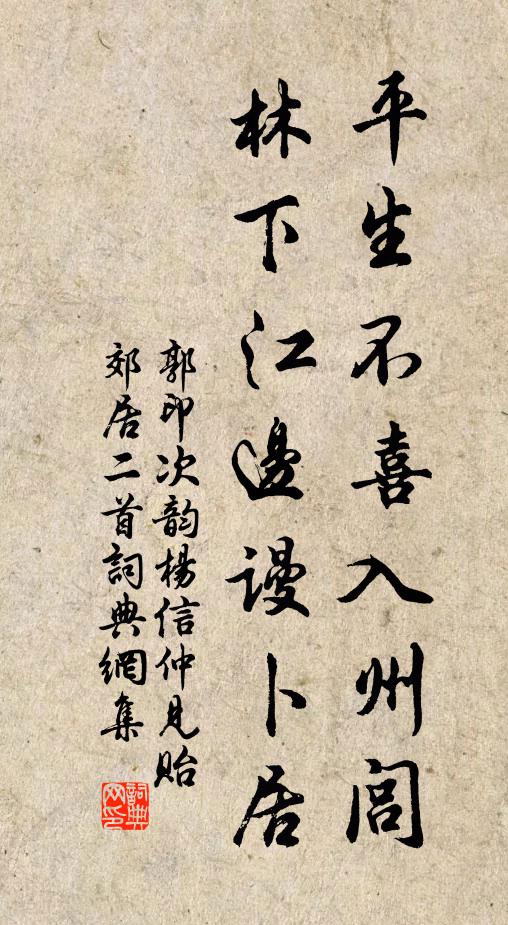 平生不喜入州閭
林下江邊謾卜居
郭印次韵楊信仲見貽
郊居二首詞典網集
詞典
网印